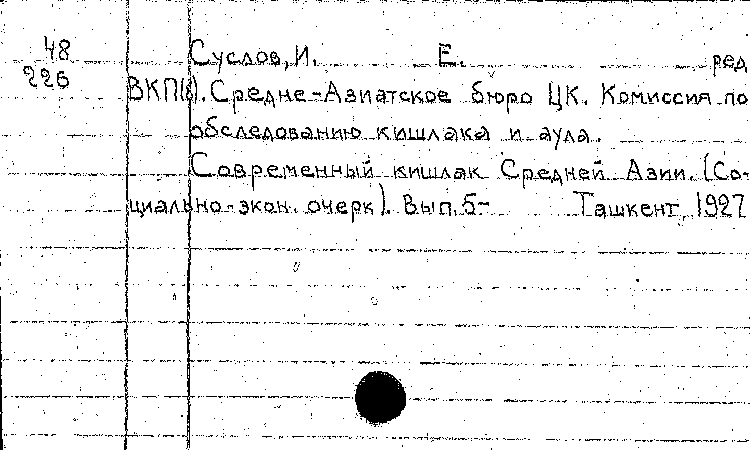 48 Суслов, И. Е. ред
226 ВКП(б). Средне-Азиатское бюро ЦК. Комиссия по
обследованию кишлака и аула.
Современный кишлак Средней Азии. (Со-
циально-экон. очерк). Вып. 5- Ташкент, 1927